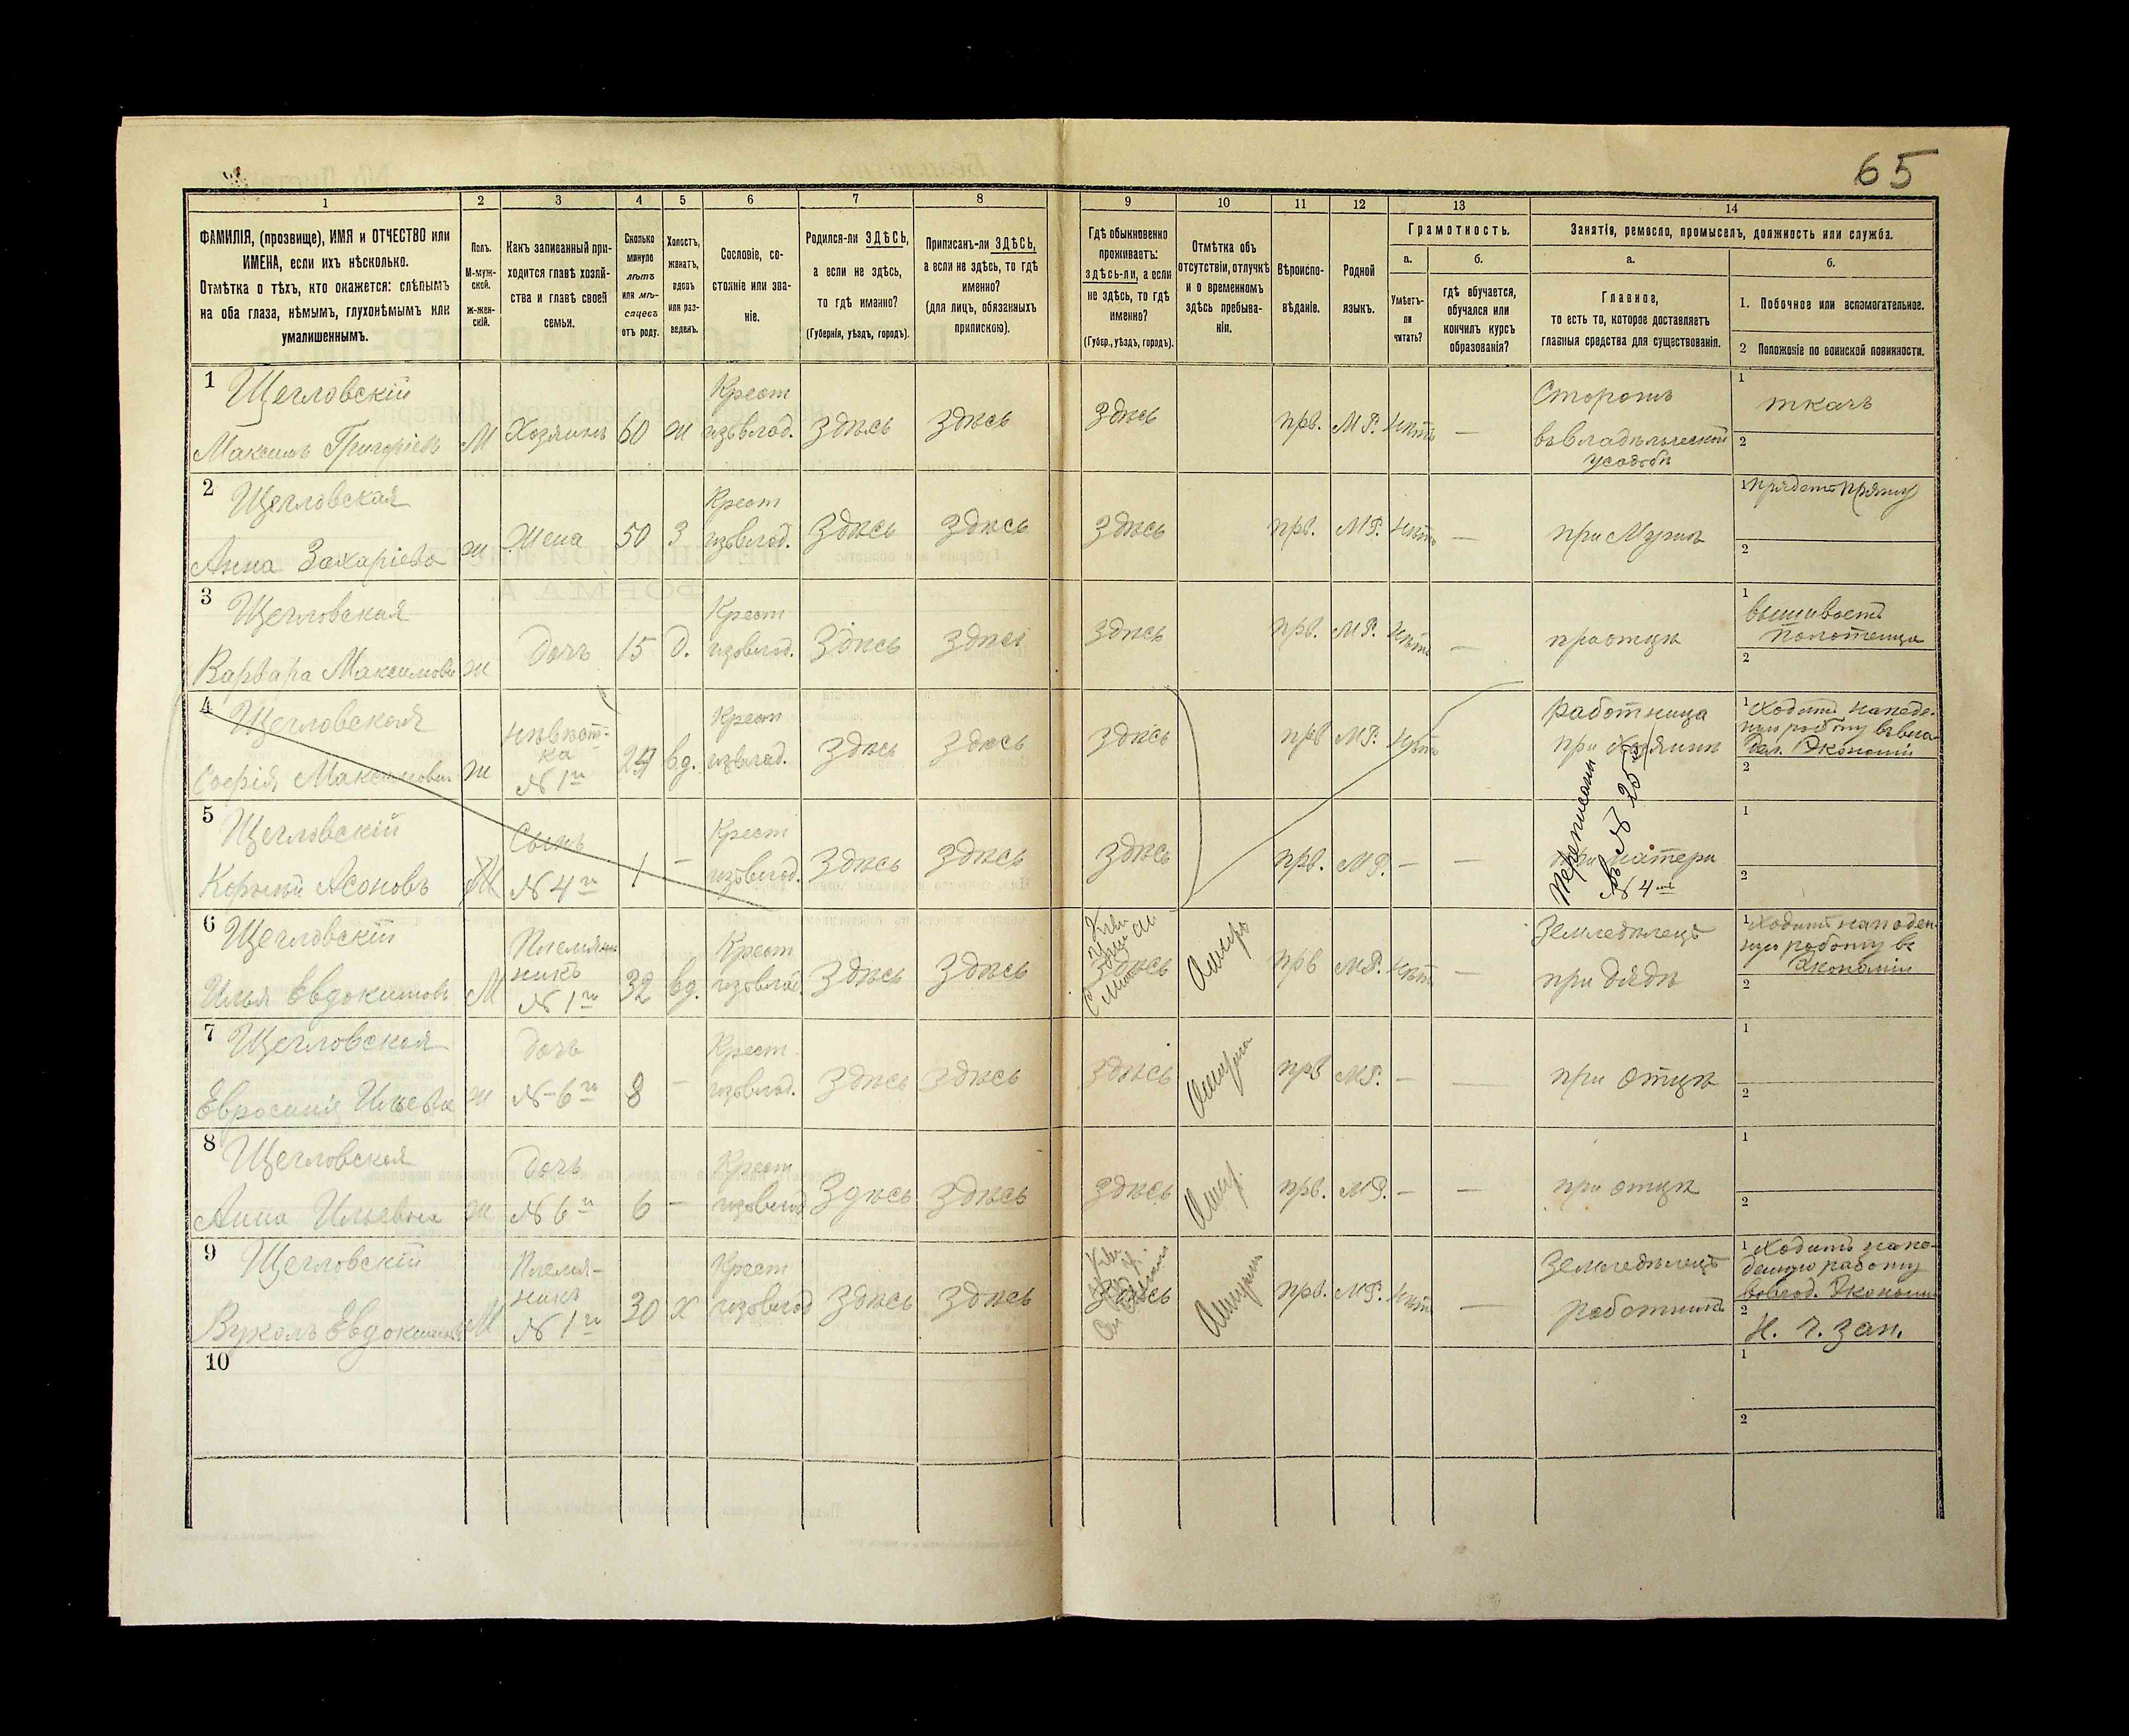 65
1 2 3 4 5 6 7 8 9 10 11 12 13 14
ФАМИЛІЯ, (прозвище), ИМЯ и ОТЧЕСТВО или
ИМЕНА, если ихъ нѣсколько.
Отмѣтка о тѣхъ, кто окажется: слѣпымъ
на оба глаза, нѣмымъ, глухонѣмымъ или
умалишеннымъ.
Полъ.
М-муж-
ской.
Ж-жен-
скій.
Какъ записанный при-
ходится главѣ хозяй-
ства и главѣ своей
семьи.
Сколько
минуло
лѣтъ
или мѣ-
сяцевъ
отъ роду.
Холостъ,
женатъ,
вдовъ
или раз-
веденъ.
Сословіе, со-
стояніе или зва-
ніе.
Родился-ли ЗДѢСЬ,
а если не здѣсь,
то гдѣ именно?
(Губернія, уѣздъ, городъ).
Приписанъ-ли ЗДѢСЬ,
а если не здѣсь, то гдѣ
именно?
(для лицъ, обязанныхъ
припискою).
Гдѣ обыкновенно
проживаетъ:
здѣсь-ли, а если
не здѣсь, то гдѣ
именно?
(Губер., уѣздъ, городъ).
Отмѣтка объ
отсутствіи, отлучкѣ
и о временномъ
здѣсь пребыва-
ніи.
Вѣроиспо-
вѣданіе.
Родной
языкъ.
Грамотность.
а.
Умѣетъ-
ли
читать?
б.
гдѣ обучается,
обучался или
кончилъ курсъ
образованія?
Занятіе, ремесло, промыселъ, должность или служба.
а.
Главное,
то есть то, которое доставляетъ
главныя средства для существованія.
б.
1. Побочное или вспомогательное.
2 Положеніе по воинской повинности.
1 Щегловскій
Максимъ Григорьевъ М Хозяинъ 60 ж Крест
изъвлад. здѣсь здѣсь здѣсь прв. М.Р. нѣтъ — Сторожъ
въ владѣльческой
усадьбѣ
1 ткачъ
2
2 Щегловская
Анна Захаріева ж Жена 50 З Крест
изъвлад. Здѣсь Здѣсь здѣсь прв. М.Р. нѣтъ — при Мужѣ
1 прядетъ пряжу
2
3 Щегловская
Варвара Максимова ж Дочь 15 Д. Крест
изъвлад. Здѣсь здѣсь здѣсь прв. М.Р. нѣтъ — при отцѣ
1 вышиваетъ
полотенца
2
4 Щегловская
Софія Максимова ж невѣст-
ка
№ 1го вд. Крест
изъвлад. здѣсь здѣсь здѣсь прв М.Р. нѣтъ Работница
при Хозяинѣ
1 Ходитъ
2
Переписаны
въ № 25
5 Щегловскій
Асоновъ М Сынъ
№ 4й 1 — Крест
изъвлад. здѣсь здѣсь здѣсь прв. М.Р. — — при матери
№ 4
1
2
6 Щегловскій
Илья Евдокимовъ М Племян
никъ
№ 1го 32 вд. Крест
изъвлад. здѣсь здѣсь здѣсь прв М.Р. нѣтъ — Земледѣлецъ
при дядѣ
1 Ходитъ на поден-
ную роботу въ
Экономіи
2
7 Щегловская
Евросинія Ильева ж Дочь
№ 6го 8 — Крест
изъвлад. здѣсь здѣсь здѣсь прв М.Р. — — при отцѣ
1
2
8 Щегловская
Анна Ильевна ж Дочь
№ 6й 6 — Крест
изъвлад здѣсь здѣсь здѣсь прв. М.Р. — — при отцѣ
1
2
9 Щегловскій
Вуколъ Евдокимовъ М Племя-
никъ
№ 1го 30 х Крест
изъвлад здѣсь здѣсь здѣсь прв. М.Р. нѣтъ — Земледѣлецъ
работникъ
1 Ходитъ на по-
денную работу
2 Н. ч. зап.
10
1
2